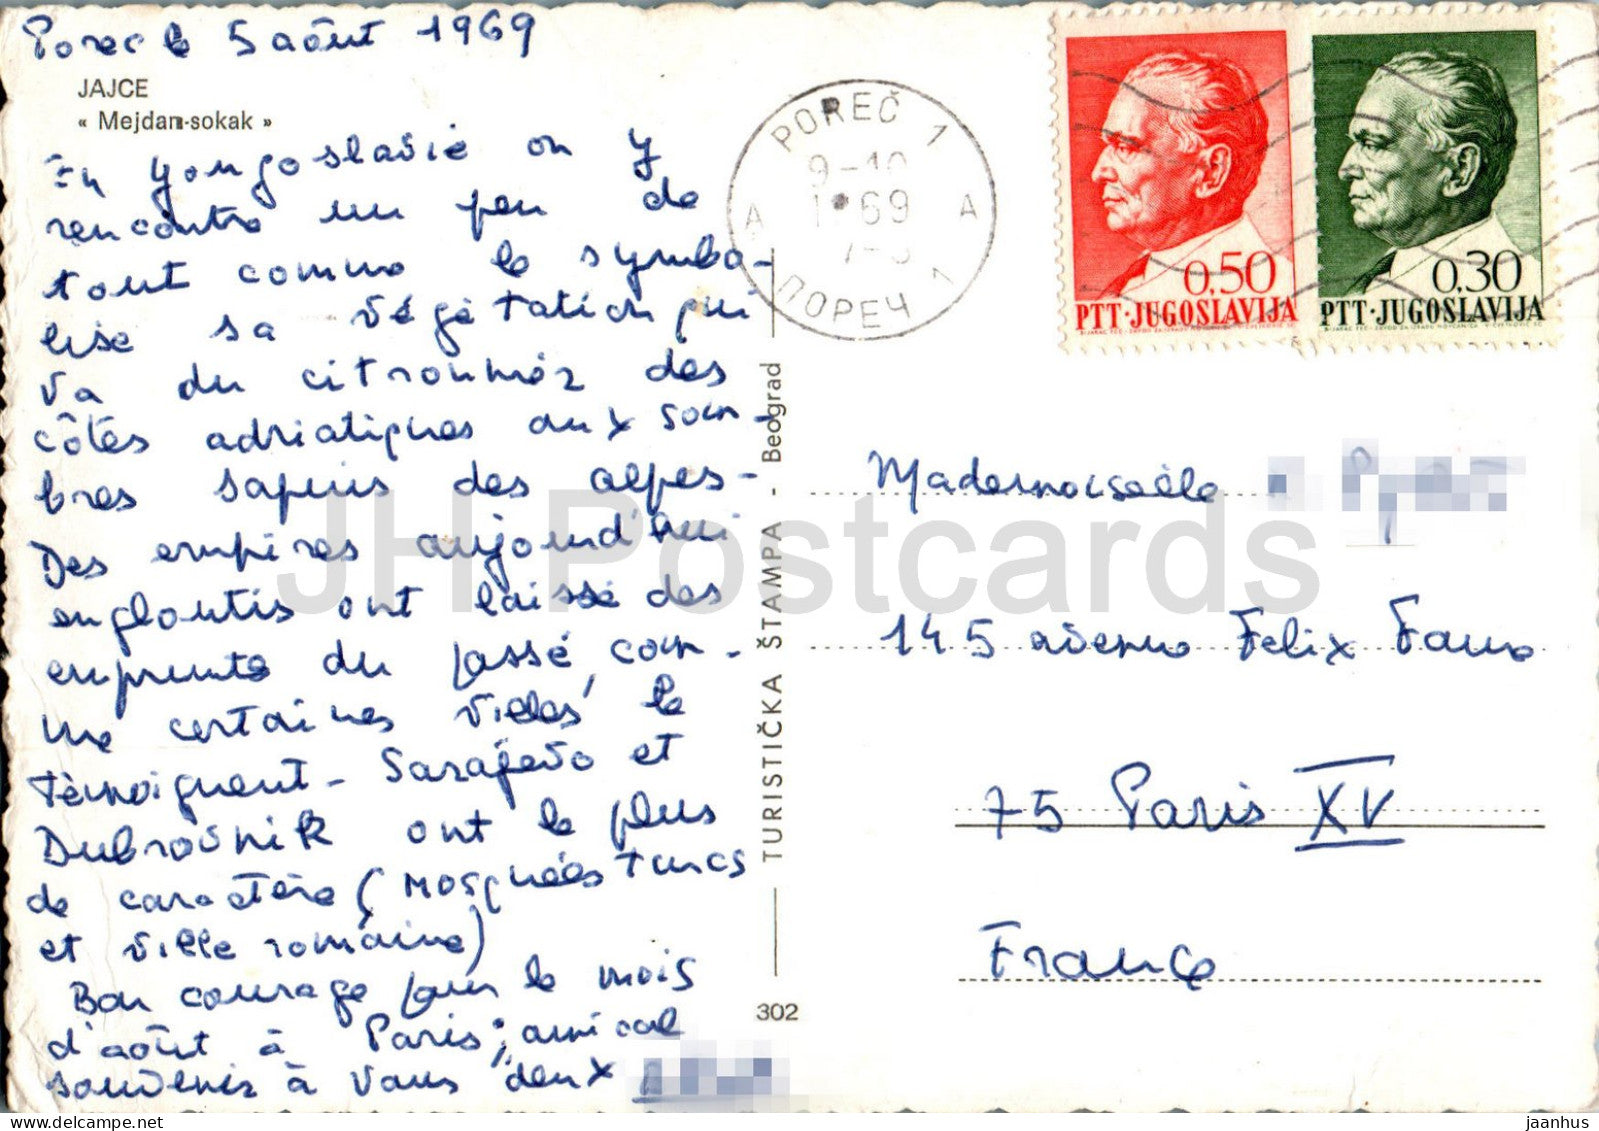 Porec le 5 août 1969
JAJCE
« Mejdan-sokak »
En Yougoslavie on y
rencontre un peu de
tout comme le symbo-
lise sa végétation qui
va du citronnier des
côtes adriatiques aux som-
bres sapins des alpes-
Des empires aujourd'hui
engloutis ont laissé des
empreintes du passé, com-
me certaines villes le
témoignent - Sarajevo et
Dubrovnik ont le plus
de caractère (mosquées turcs
et ville romaine)
Bon courage pour le mois
d'août à Paris; amical
souvenir à vous deux
POREČ 1
9-10
69
A A
ПОРЕЧ 1
0,50
PTT·JUGOSLAVIJA
0,30
PTT·JUGOSLAVIJA
TURISTIČKA ŠTAMPA - Beograd
302
Mademoiselle
145 avenue Felix Faure
75 Paris XV
France
JH Postcards
delcampe.net
jaanhus